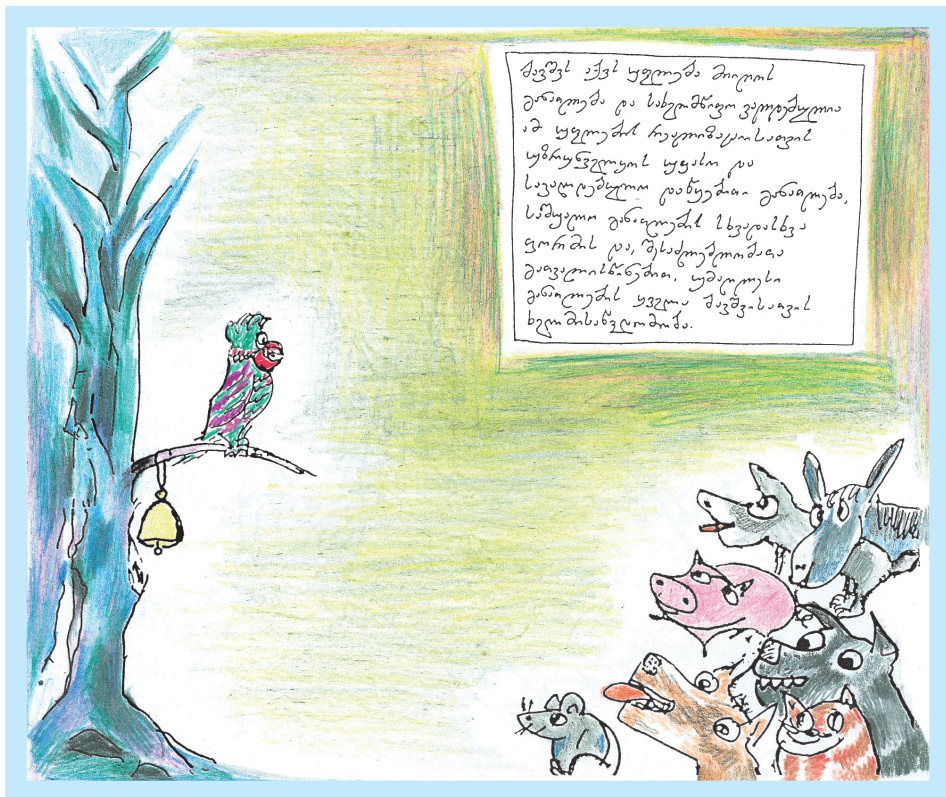 ბავშვს აქვს უფლება მიიღოს
განათლება და სახელმწიფო ვალდებულია
ამ უფლების რეალიზაციისათვის
უზრუნველყოს უფასო და
სავალდებულო დაწყებითი განათლება,
საშუალო განათლების სხვადასხვა
ფორმის და, შესაძლებლობათა
გათვალისწინებით, უმაღლესი
განათლების ყველა ბავშვისათვის
ხელმისაწვდომობა.